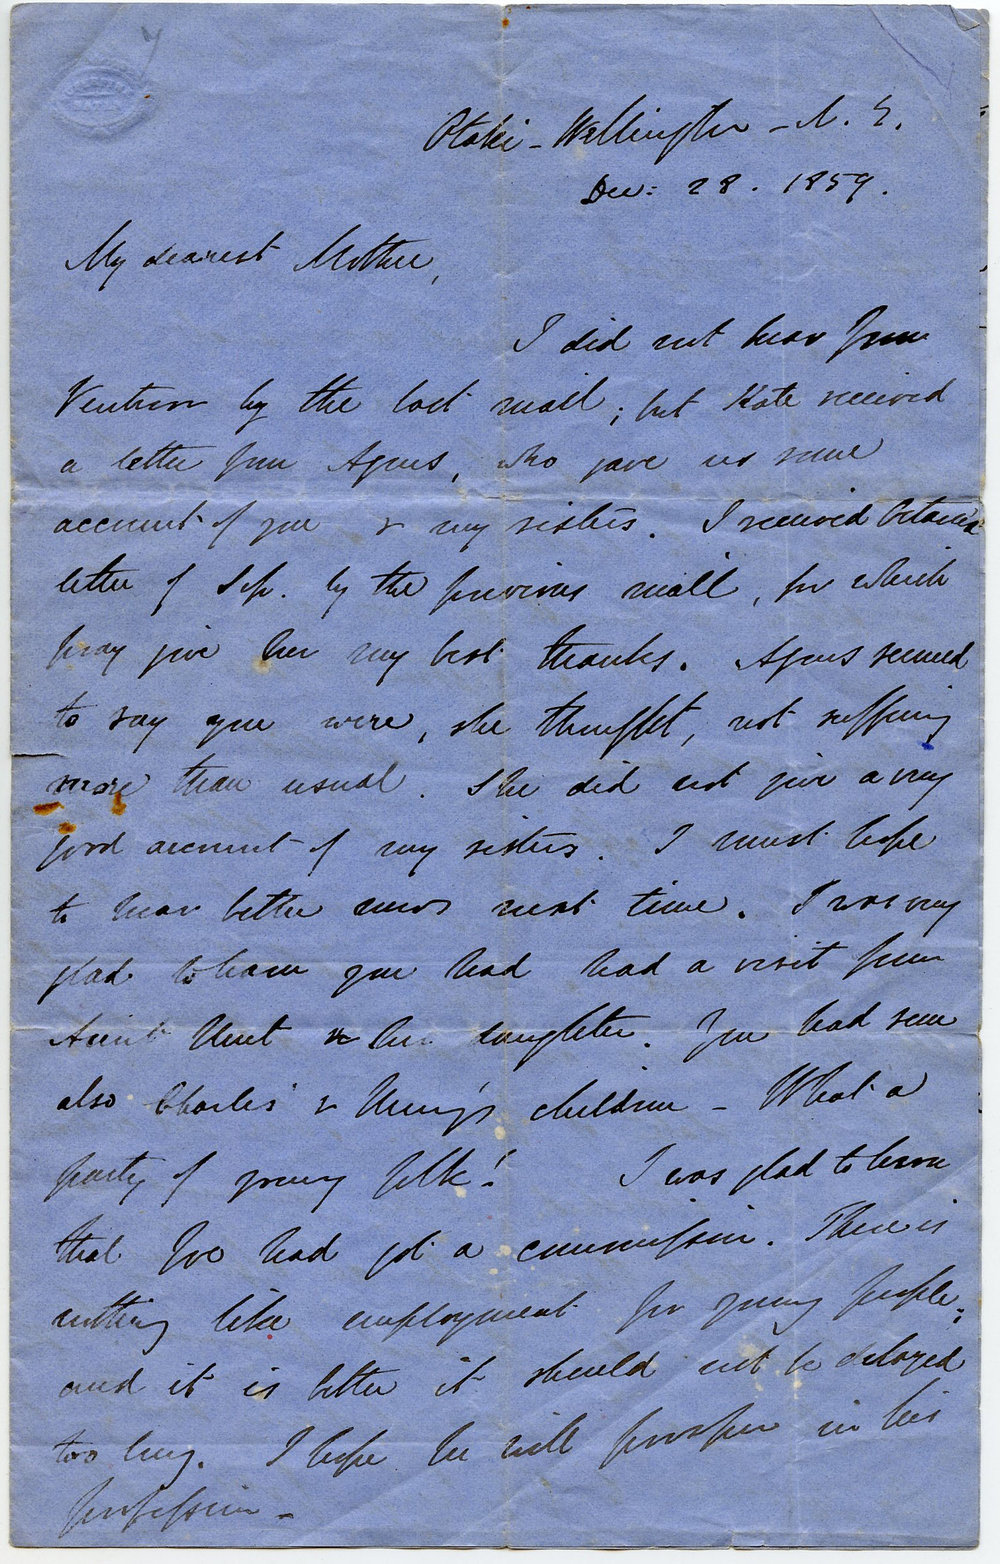 Otaki - Wellington - N. Z.
Dec: 28. 1859.
My dearest Mother,
I did not hear from
Ventnor by the last mail; but Kate received
a letter from Agnes, who gave us some
account of you & my sisters. I received Octavia's
letter of Sep. by the previous mail, for which
pray give her my best thanks. Agnes seemed
to say you were, she thought, not suffering
more than usual. She did not give a very
good account of my sisters. I must hope
to hear better news next time. I was very
glad to learn you had had a visit from
Aunt & her daughter. You had seen
also Charles' & Henry's children - What a
party of young folk! I was glad to learn
that Joe had got a commission. There is
nothing like employment for young people;
and it is better it should not be delayed
too long. I hope he will prosper in his
profession -